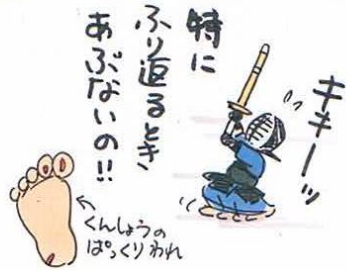 特に
ふり返るとき
あぶないの!!
キキーッ
くんしょうの
ぱっくりわれ